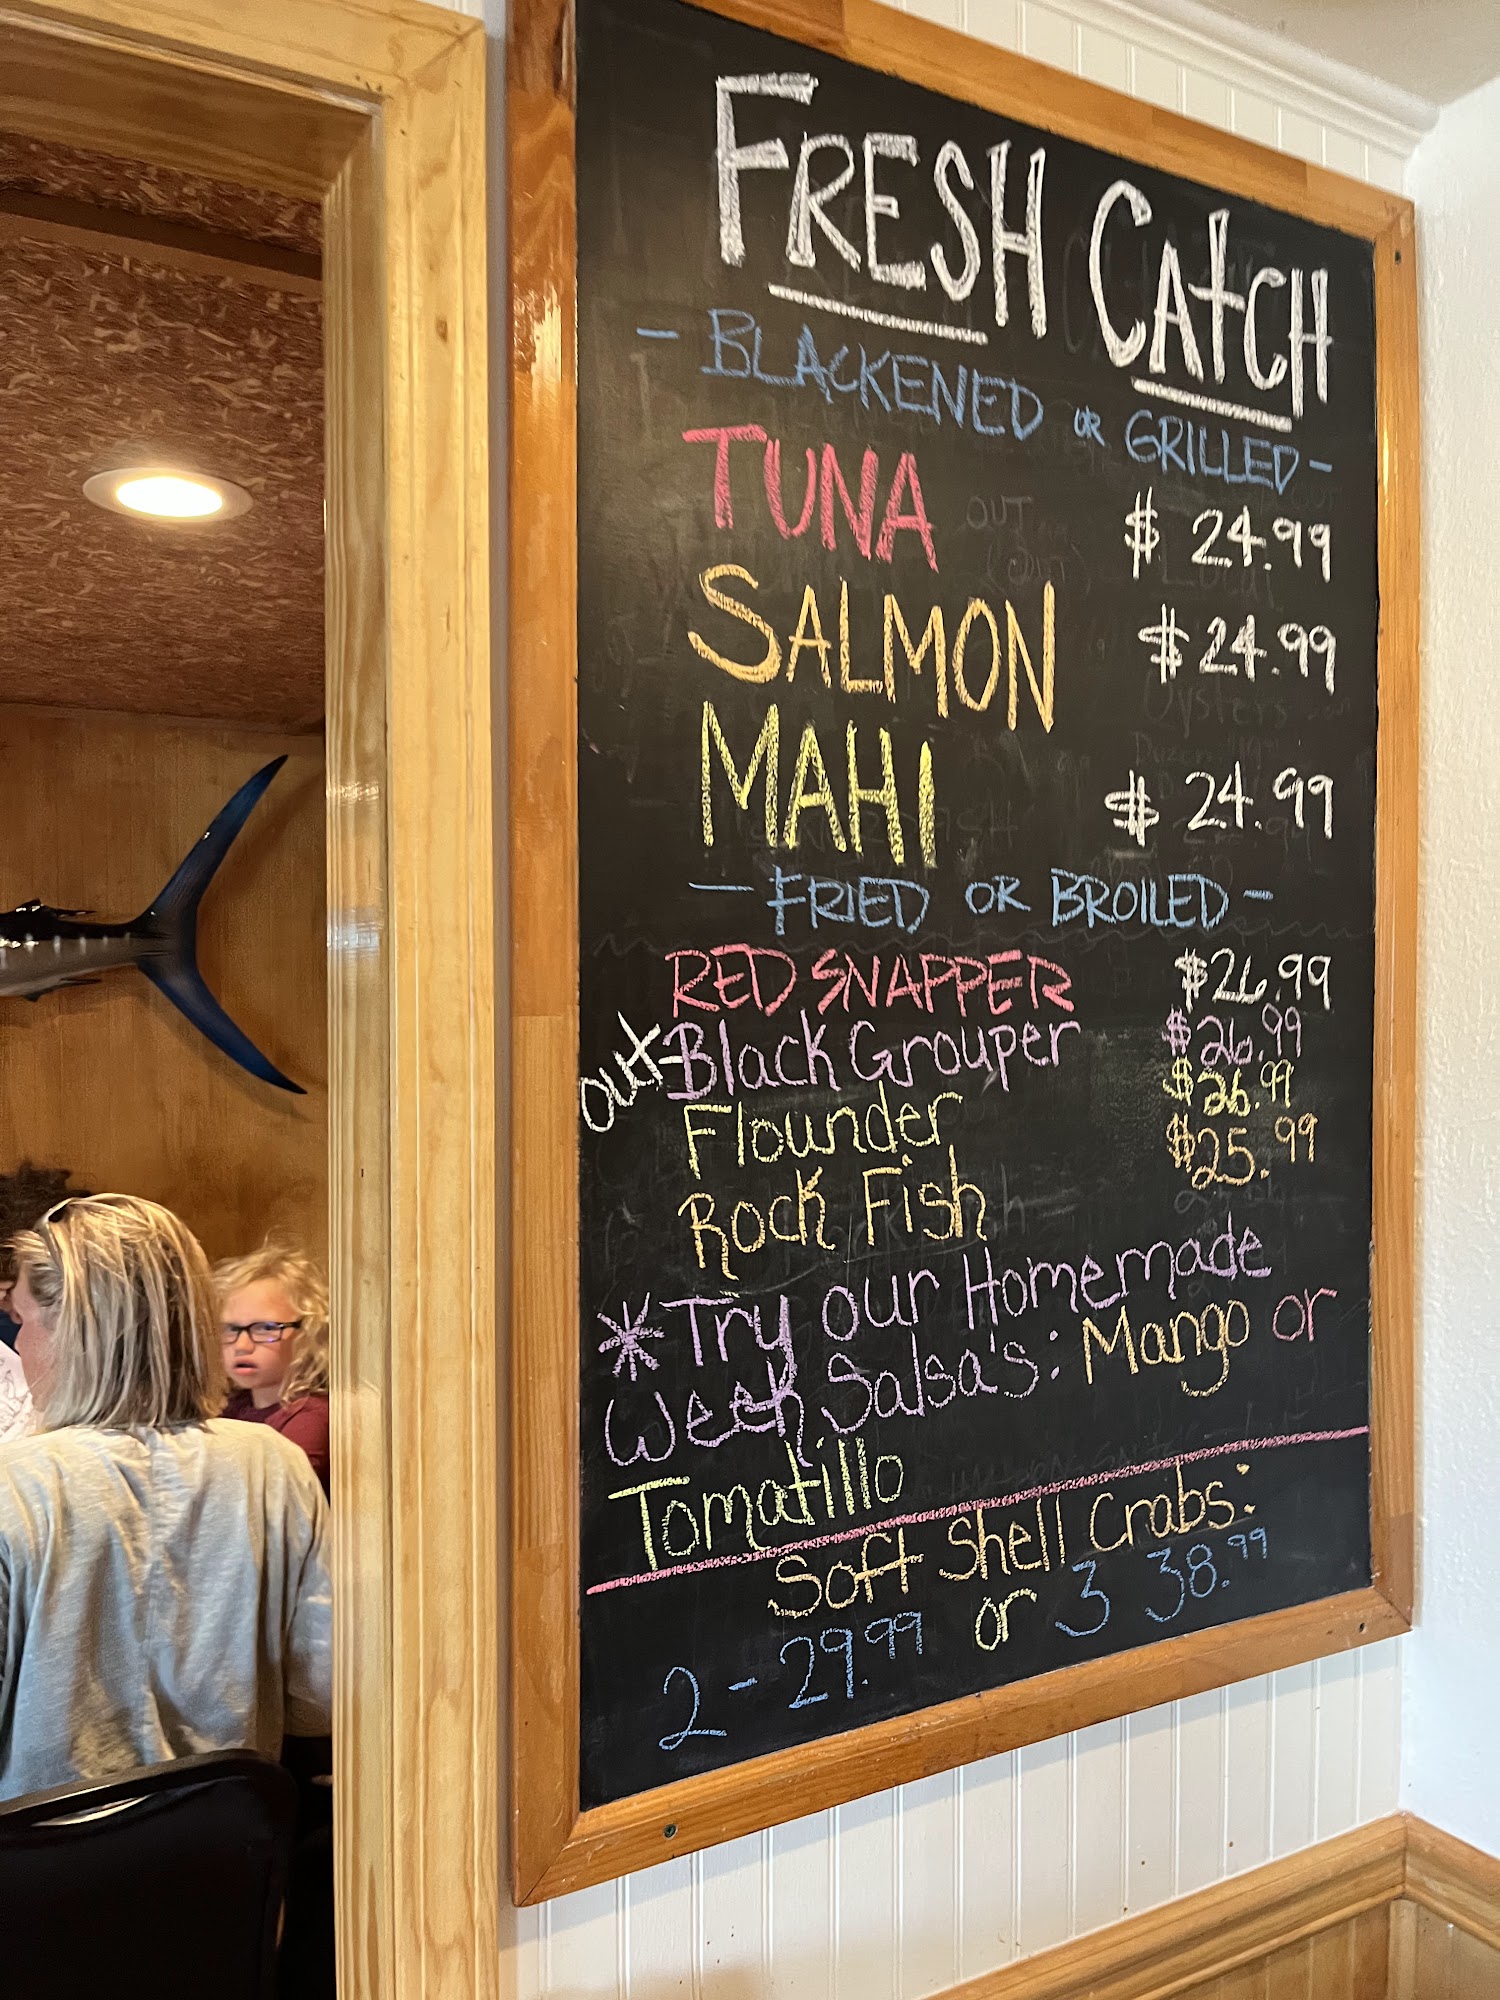 FRESH CATCH
- BLACKENED OR GRILLED -
TUNA $ 24.99
SALMON $ 24.99
MAHI $ 24.99
- FRIED OR BROILED -
RED SNAPPER $26.99
out- Black Grouper $26.99
Flounder $26.99
Rock Fish $25.99
* Try our Homemade
Week Salsa's: Mango or
Tomatillo
Soft Shell Crabs:
2 - 29.99 or 3 38.99